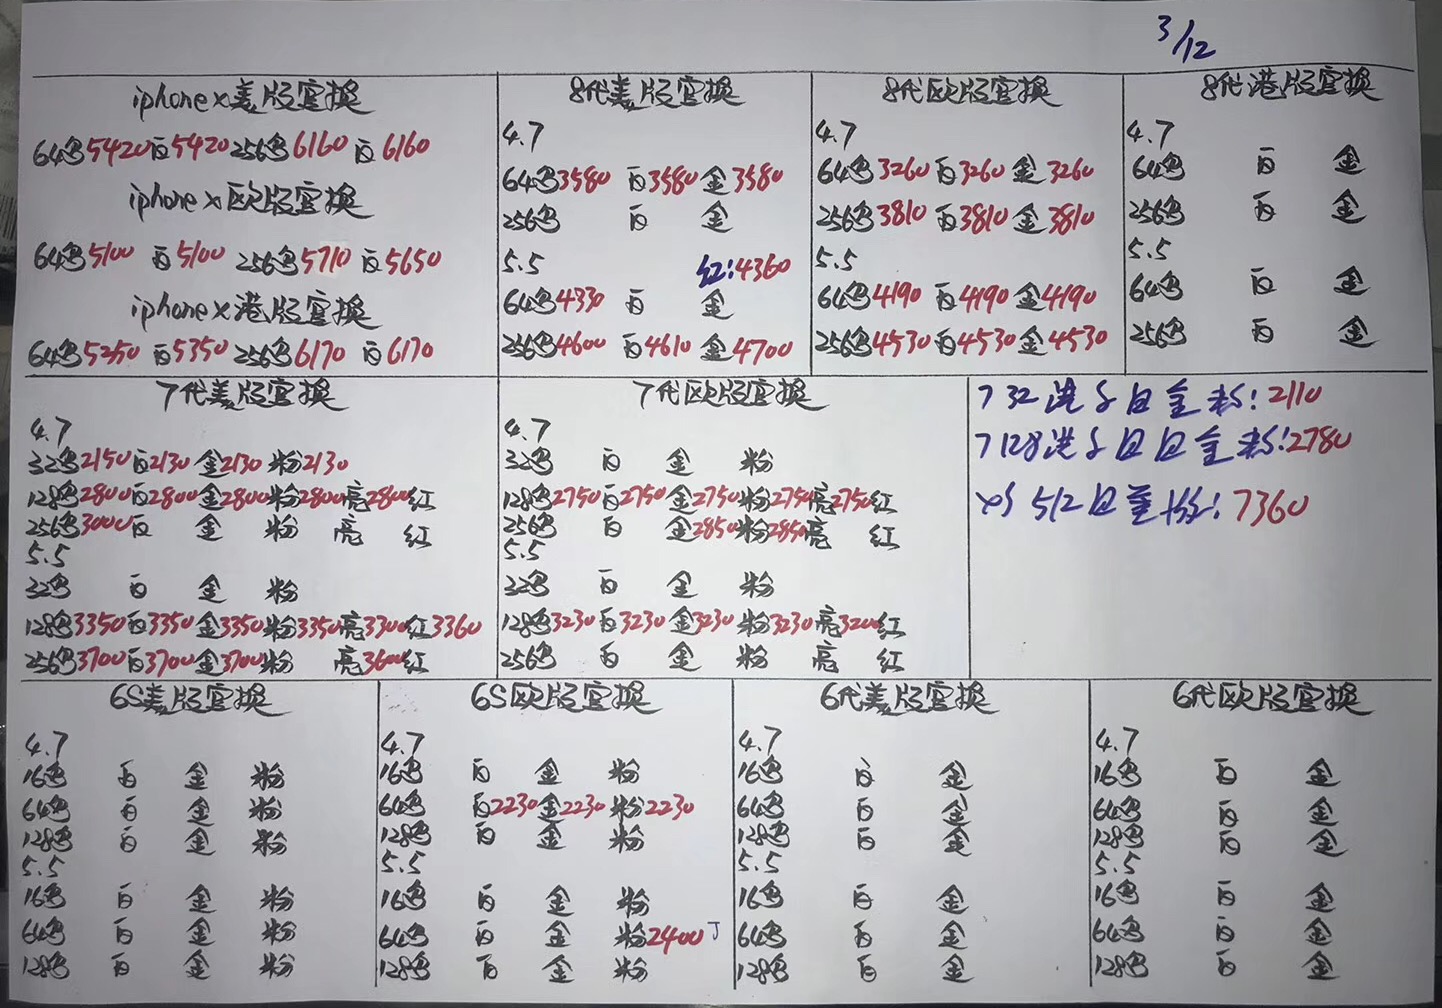 3/12
iphonex美版官换
64黑5420白5420 256黑6160 白6160
iphonex欧版官换
64黑5100 白5100 256黑5710 白5650
iphonex港版官换
64黑5250 白5350 256黑6170 白6170
8代美版官换
4.7
64黑3580 白3580 金3580
256黑 白 金
5.5 红:4360
64黑4330 白 金
256黑4600 白4610 金4700
8代欧版官换
4.7
64黑3260 白3260 金3260
256黑3810 白3810 金3810
5.5
64黑4190 白4190 金4190
256黑4530 白4530 金4530
8代港版官换
4.7
64黑 白 金
256黑 白 金
5.5
64黑 白 金
256黑 白 金
7代美版官换
4.7
32黑2150 白2130 金2130 粉2130
128黑2800 白2800 金2800 粉2800 亮2800 红
256黑3000 白 金 粉 亮 红
5.5
32黑 白 金 粉
128黑3350 白3350 金3350 粉3350 亮3300 红3360
256黑3700 白3700 金3700 粉 亮3600 红
7代欧版官换
4.7
32黑 白 金 粉
128黑2750 白2750 金2750 粉2750 亮2750 红
256黑 白 金2850 粉2850 亮 红
5.5
32黑 白 金 粉
128黑3230 白3230 金3230 粉3230 亮3200 红
256黑 白 金 粉 亮 红
7 32港 白金粉:2110
7 128港 金粉:2780
xs 512日金:7360
6S美版官换
4.7
16黑 白 金 粉
64黑 白 金 粉
128黑 白 金 粉
5.5
16黑 白 金 粉
64黑 白 金 粉
128黑 白 金 粉
6S欧版官换
4.7
16黑 白 金 粉
64黑 白2230 金2230 粉2230
128黑 白 金 粉
5.5
16黑 白 金 粉
64黑 白 金 粉2400
128黑 白 金 粉
6代美版官换
4.7
16黑 白 金
64黑 白 金
128黑 白 金
5.5
16黑 白 金
64黑 白 金
128黑 白 金
6代欧版官换
4.7
16黑 白 金
64黑 白 金
128黑 白 金
5.5
16黑 白 金
64黑 白 金
128黑 白 金